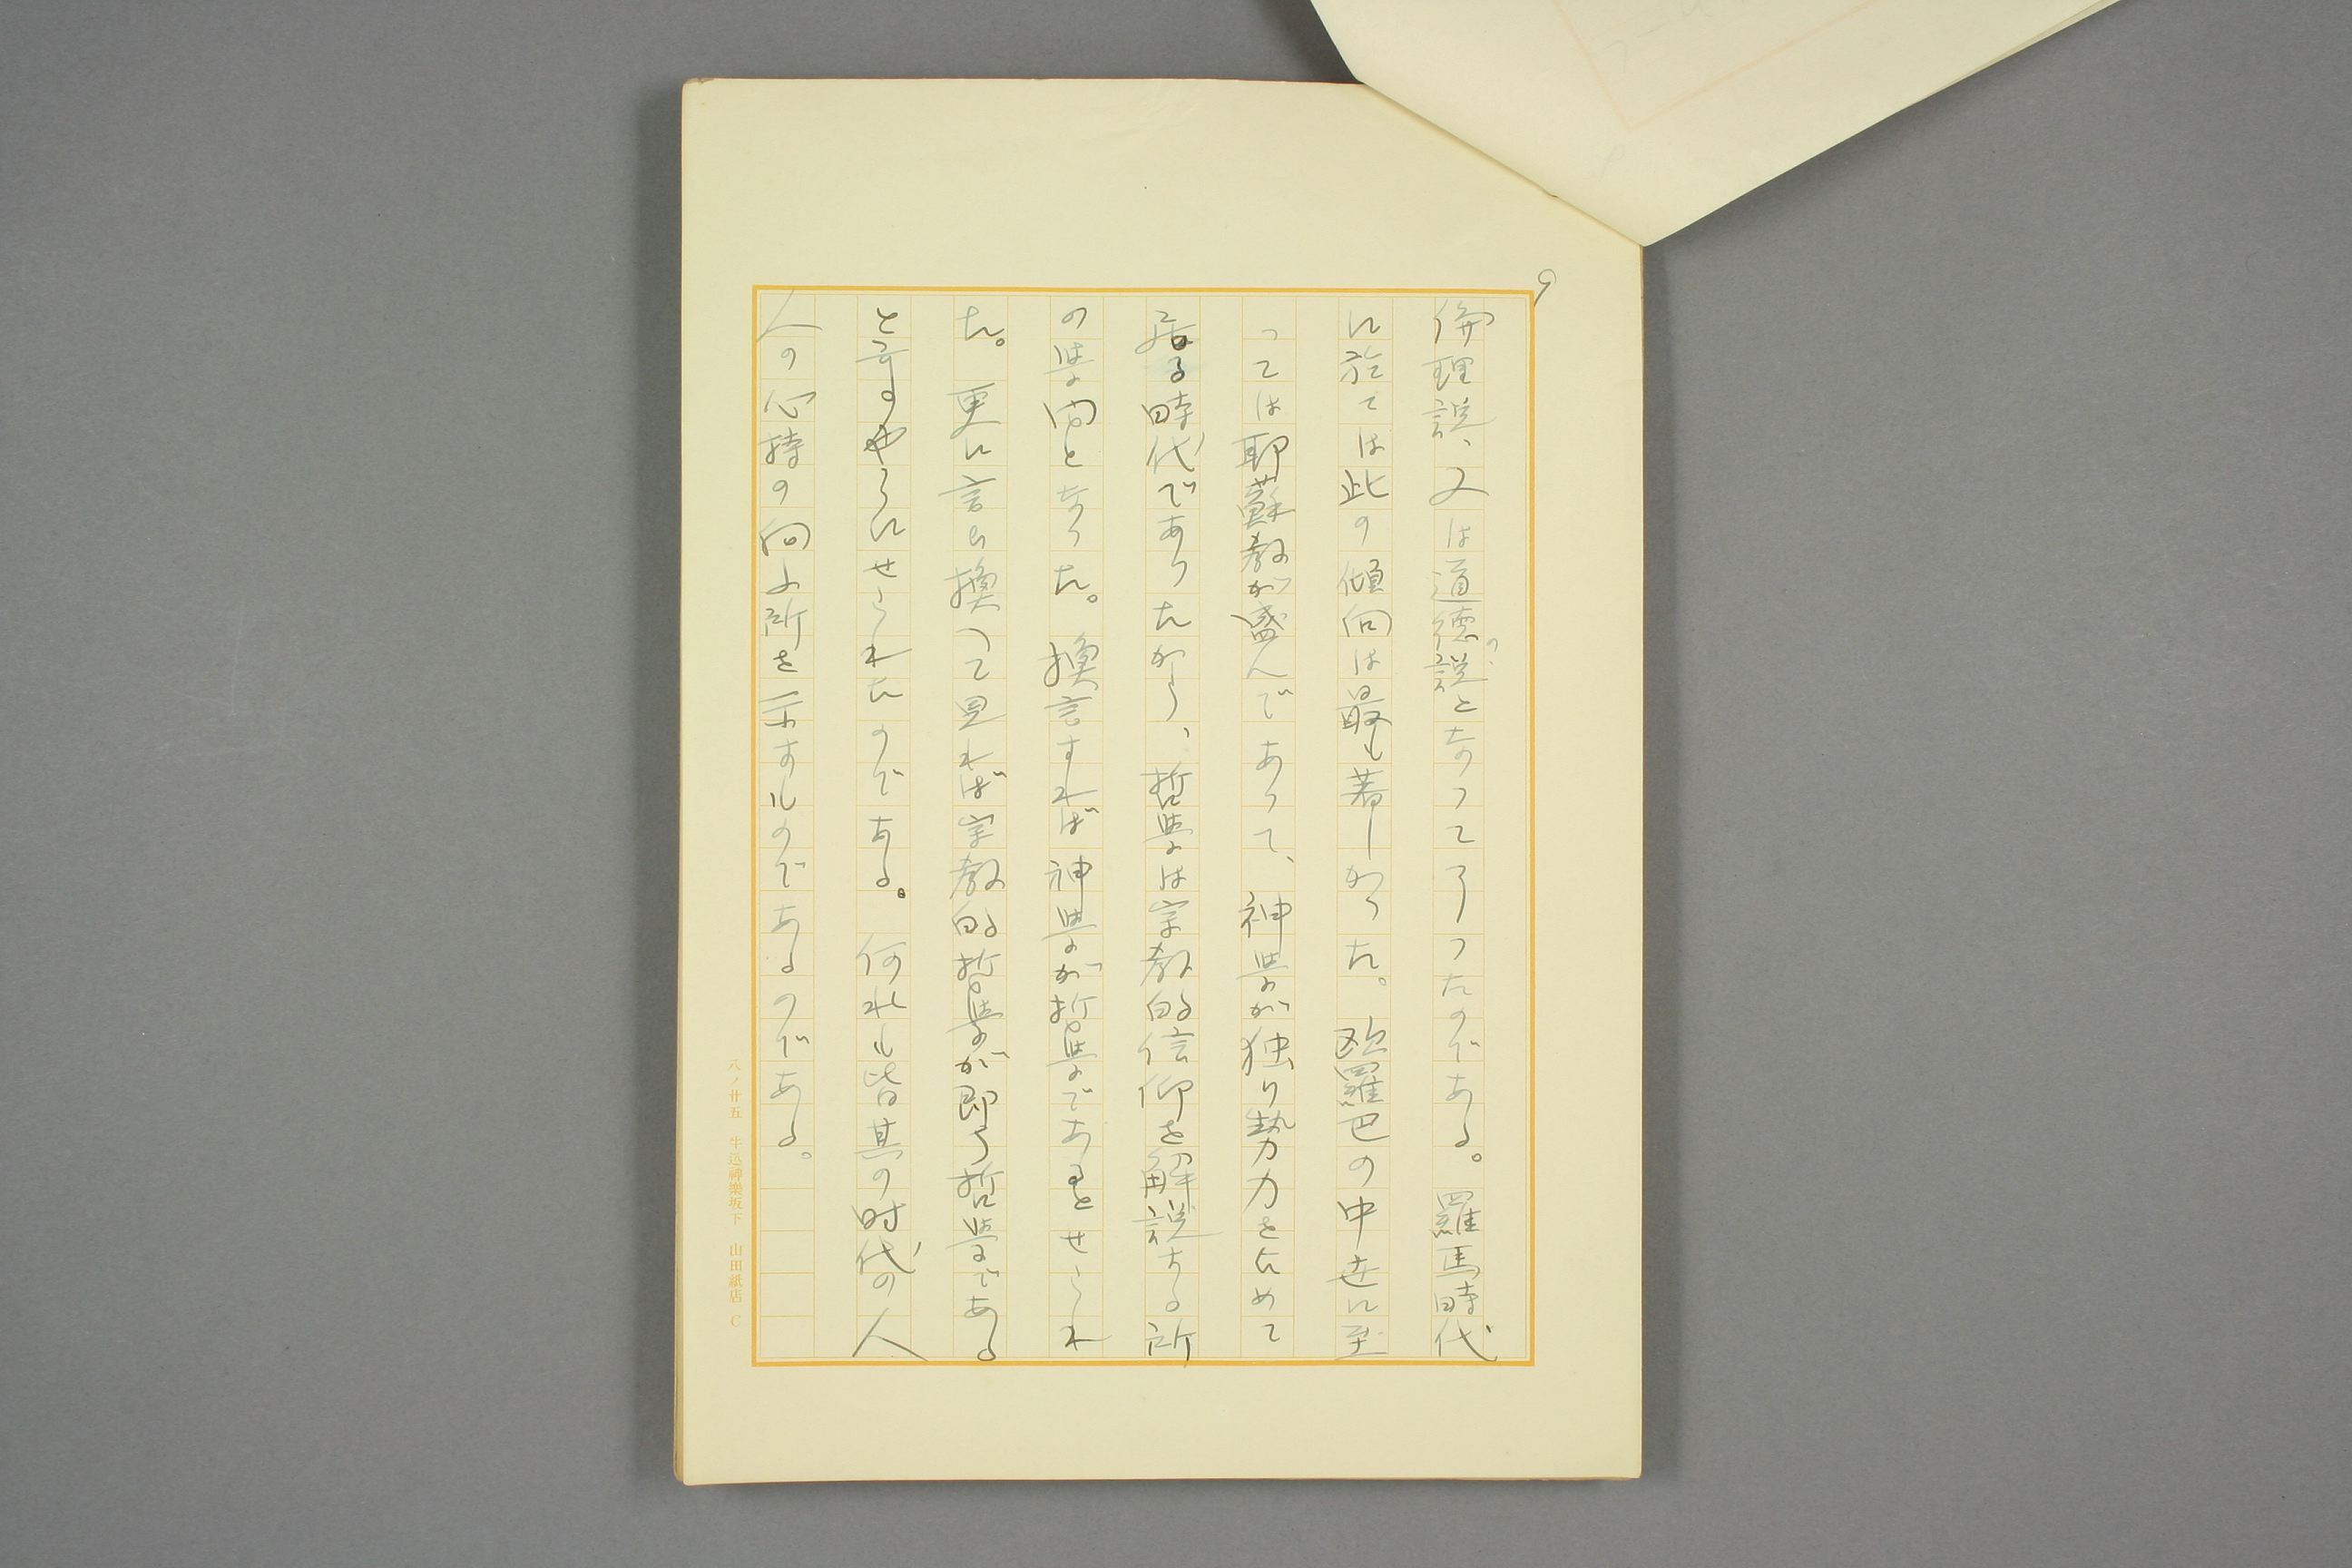 9
倫理説、又は道徳説となつて了つたのである。羅馬時代
に於ては此の傾向は最も著しかつた。欧羅巴の中世に至
つては耶蘇教が盛んであつて、神学が独り勢力を占めて
居る時代であつたから、哲学は宗教的信仰を解説する所
の学問となつた。換言すれば神学が哲学であるとせられ
た。更に言ひ換へて見れば宗教的哲学が即ち哲学である
と考へるやうにせられたのである。何れも皆其の時代の人
人の心持の向ふ所を示すものであるのである。
八ノ廿五 牛込神樂坂下 山田紙店 C